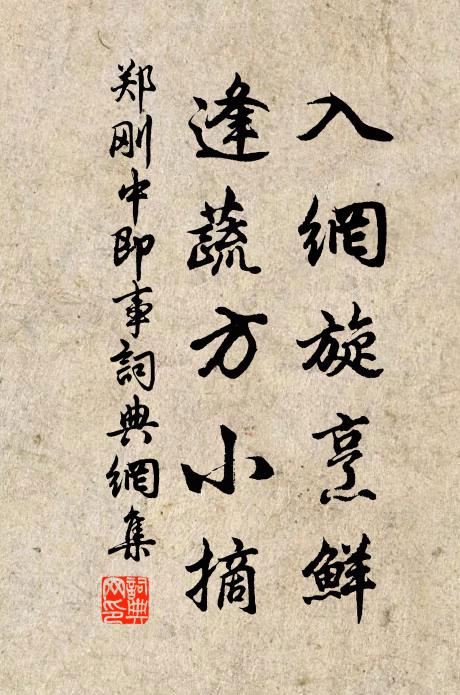 入網旋烹鮮
逢蔬方小摘
郑刚中即事詞典網集
詞典網印